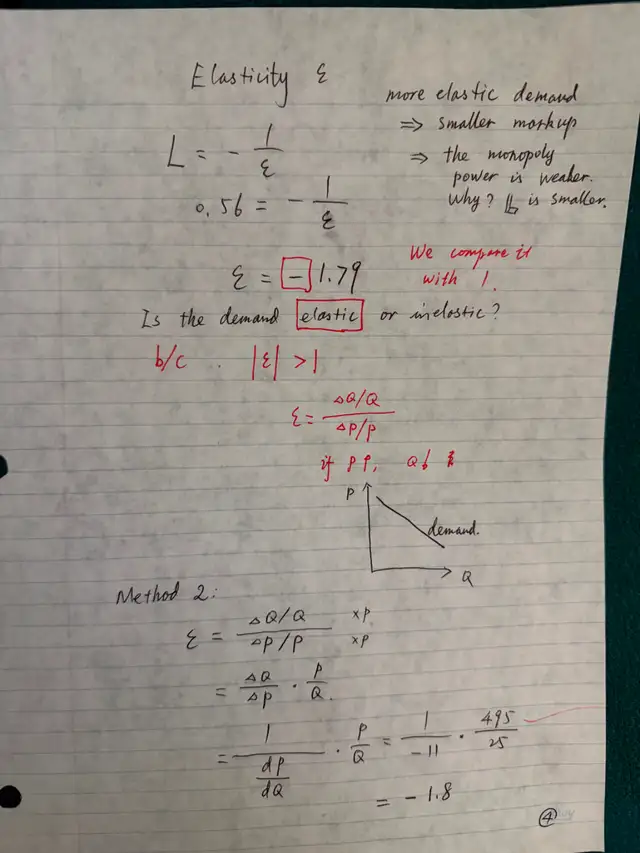 Elasticity ε
more elastic demand
⇒ smaller markup
⇒ the monopoly
power is weaker.
Why? L is smaller.
L = - 1/ε
0.56 = - 1/ε
ε = - 1.79
We compare it
with 1.
Is the demand elastic or inelastic?
b/c . |ε| > 1
ε = (△Q/Q)/(△P/P)
if P↑, Q↓
P
demand.
Q
Method 2:
ε = (△Q/Q)/(△P/P) ×P ×P
= △Q/△P · P/Q.
= 1/(dP/dQ) · P/Q = 1/-11 · 495/25
= - 1.8
④